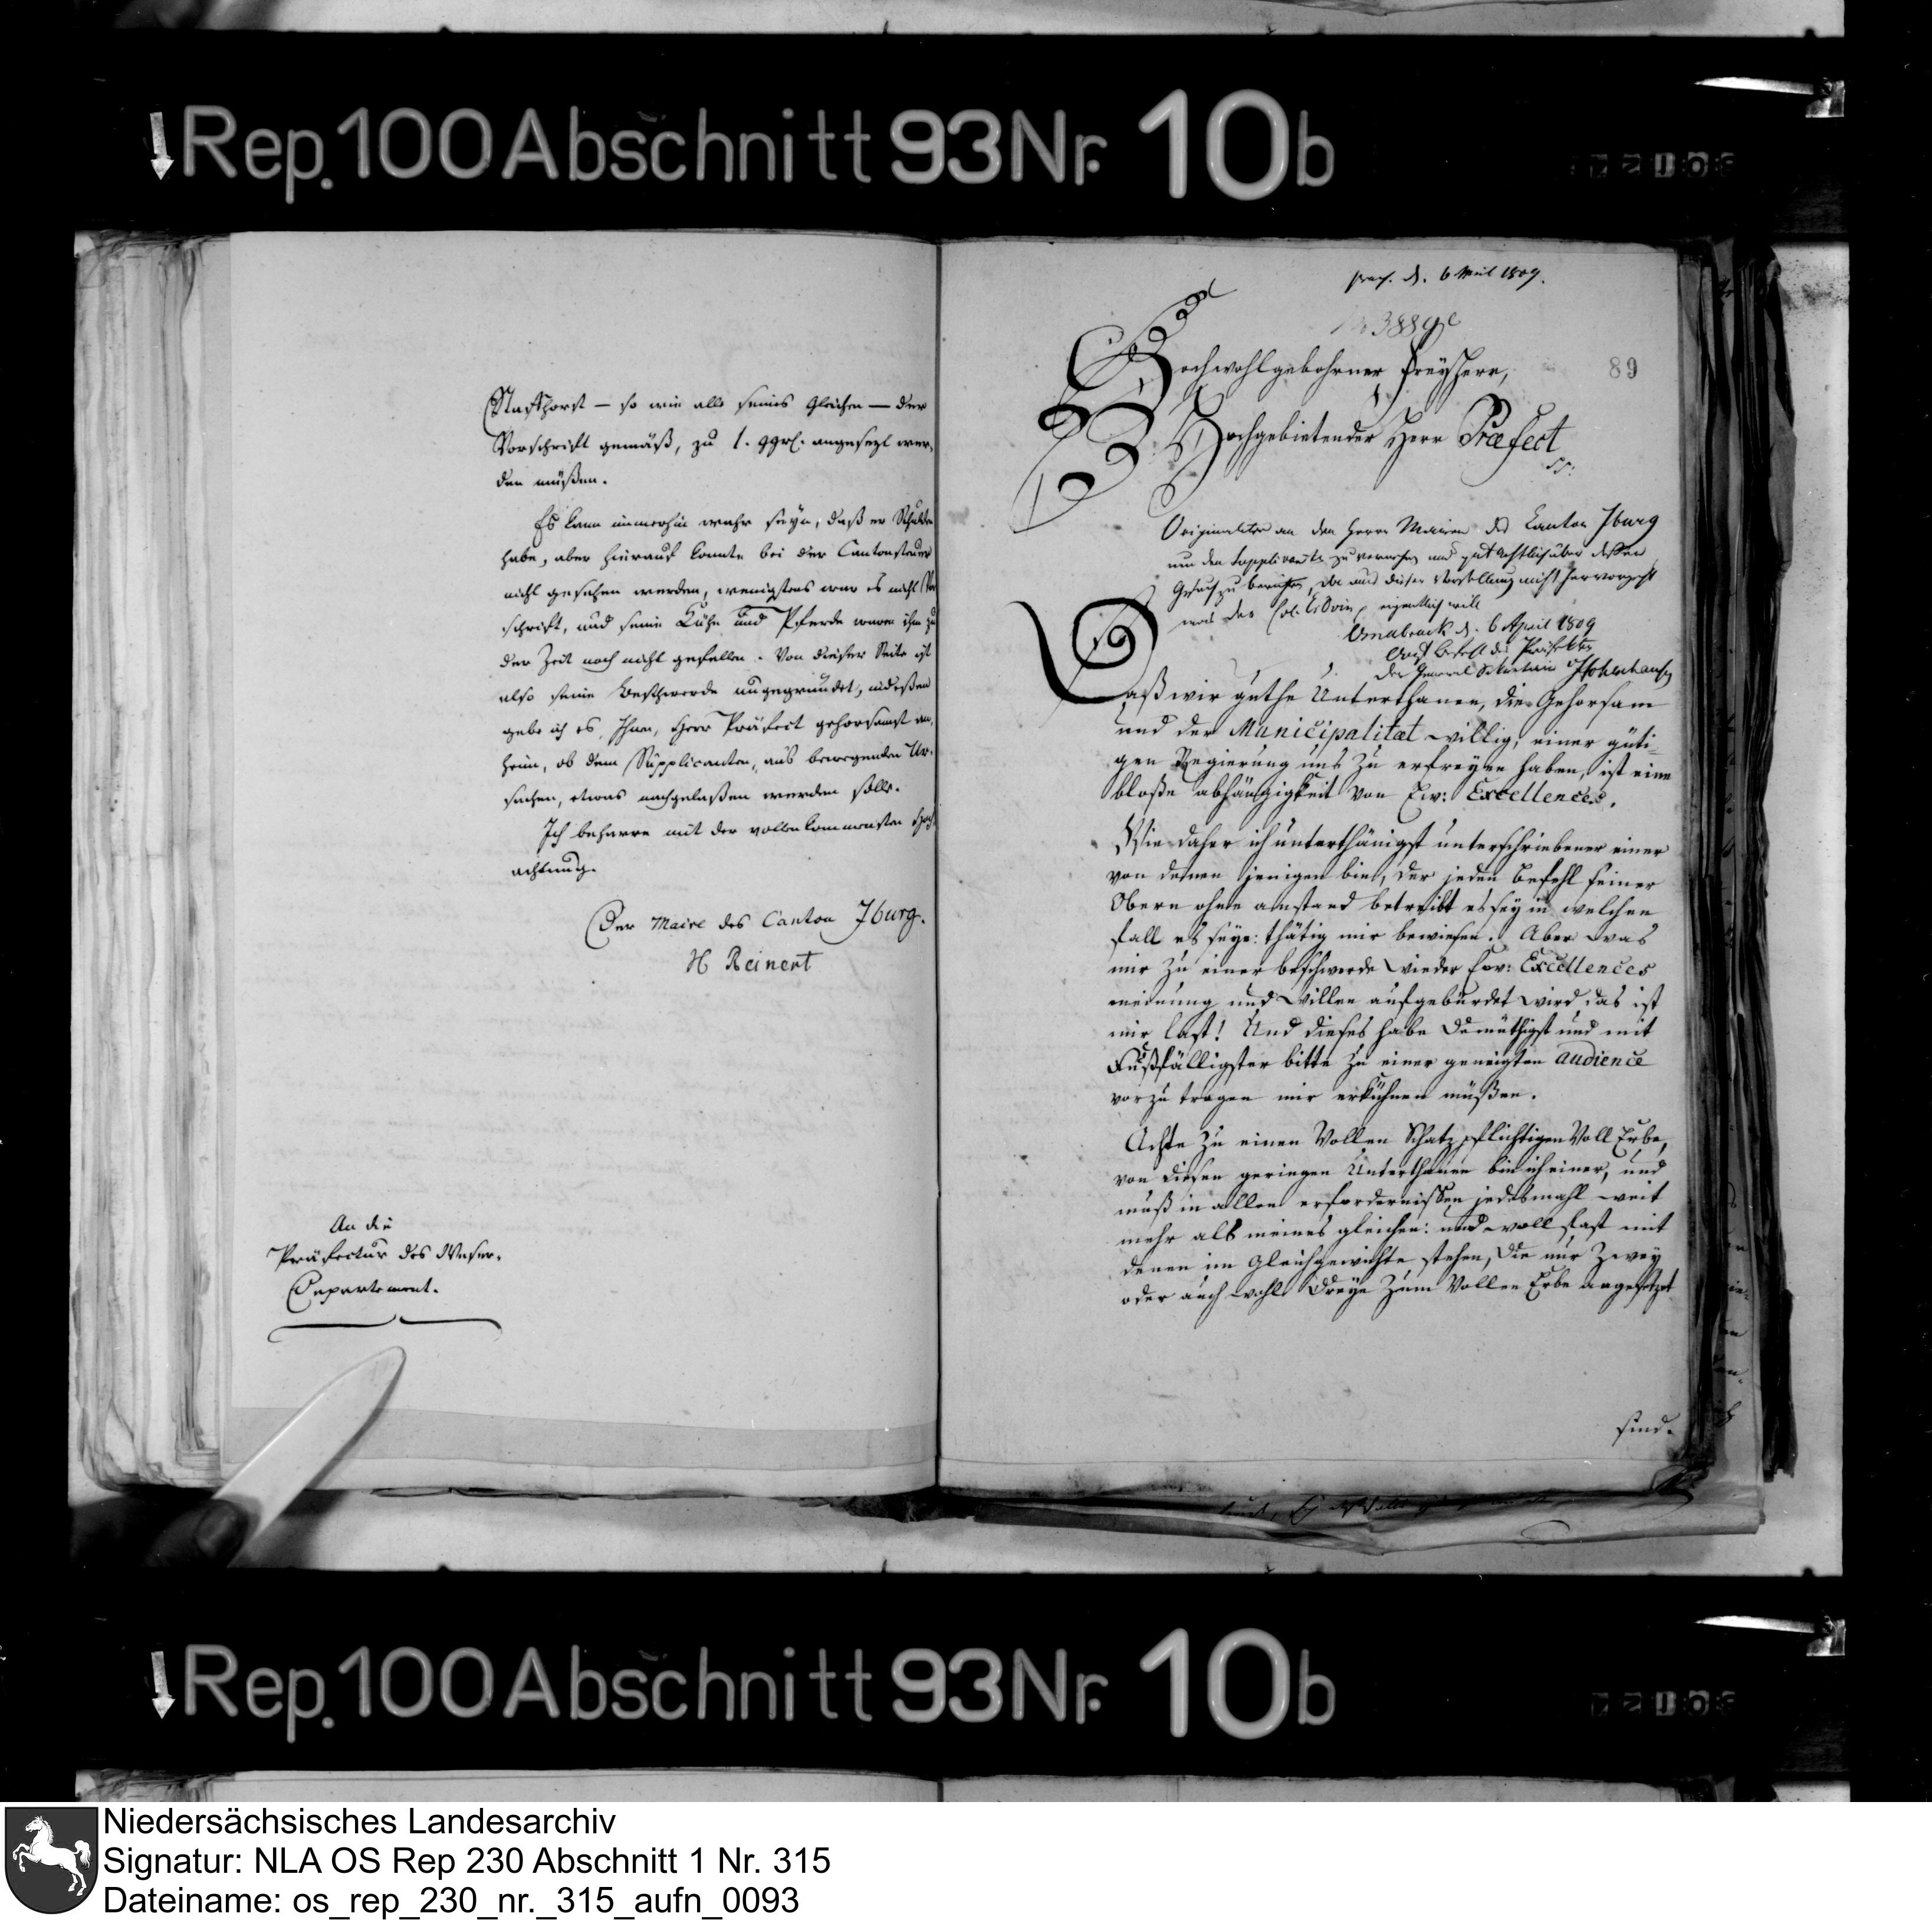 Rep. 100 Abschnitt 93 Nr. 10b
Stafhorst — so wie alle seines Gleichen — der
Vorschrift gemäß, zu 1. ggrl. angesezt wer-
den müßen.
Es kann immerhin wahr seyn, daß er Schulden
habe, aber hierauf konnte bei der Cantonsteuer
nicht gesehen werden, wenigstens war es nicht Vor
schrift, und seine Kühe und Pferde waren ihm zu
der Zeit noch nicht gefallen. Von dieser Seite ist
also seine Beschwerde ungegründet, indeßen
gebe ich es, Ihnen, Herr Präfect gehorsamst an-
heim, ob dem Supplicanten, aus bewegenden Ur-
sachen, etwas nachgelaßen werden solle.
Ich beharre mit der vollenkommensten Hoch
achtung.
Der Maire des Canton Iburg.
H Reinert
An die
Präfectur des Weser-
Departement.
praes. d. 6 April 1809.
3889
89
Hochwohlgebohrner FreyHerr,
Hochgebietender Herr Præfect
Originaliter an den Herrn Maire des Canton Iburg
um den Supplicanten zu vernehmen und gutachtlich über deßen
Gesuch zu berichten, da aus dieser Vorstellung nicht hervorgeht
was der Col. eigentlich will
Osnabrück d. 6 April 1809
Auf Befehl des Präfekten
Der General Sekretair
Daß wir guthe Unterthanen, die Gehorsam
und der Municipalitæt willig, einer güti-
gen Regierung uns zu erfreyen haben, ist eine
bloße abhängigkeit von Ew: Excellences.
Wie daher ich unterthänigst unterschriebener einer
von denen jenigen bin, der jeden Befehl seiner
Obern ohne anstand betreibt es sey in welchen
fall es seye: thätig mir bewiesen. Aber was
mir zu einer beschwerde wieder Ew: Excellences
meinung und willen aufgebürdet wird das ist
mir last! Und dieses habe demüthigst und mit
Fußfälligster bitte zu einer geneigten audience
vorzutragen mir erkühnen müßen.
Achte zu einen Vollen Schatz pflichtigen Voll Erbe,
von diesen geringen Unterthanen bin ich einer, und
muß in allen erfordernissen jedesmahl weit
mehr als meines gleichen: und woll fast mit
denen im Gleichgewichte stehen, die nur Zwey
oder auch wohl Dreye zum Vollen Erbe angesetzet
sind.
Rep. 100 Abschnitt 93 Nr. 10b
Niedersächsisches Landesarchiv
Signatur: NLA OS Rep 230 Abschnitt 1 Nr. 315
Dateiname: os_rep_230_nr._315_aufn_0093